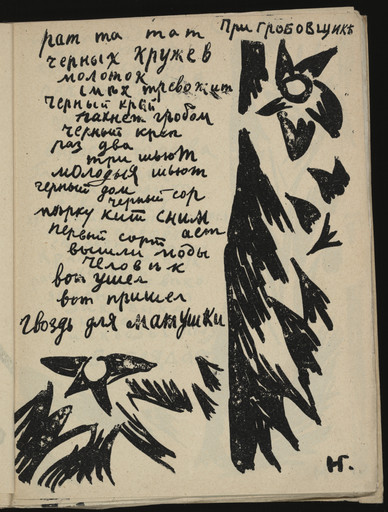 При гробовщикѣ
рат та тат
черных кружев
молоток
тревожит
черный креп
пахнет гробом
черный креп
раз два
три шьют
молодыя шьют
черный дом
черный сор
кит сним
первый сорт ает
вышли моды
человѣк
вот ушел
вот пришел
гвоздь для матушки
НГ.